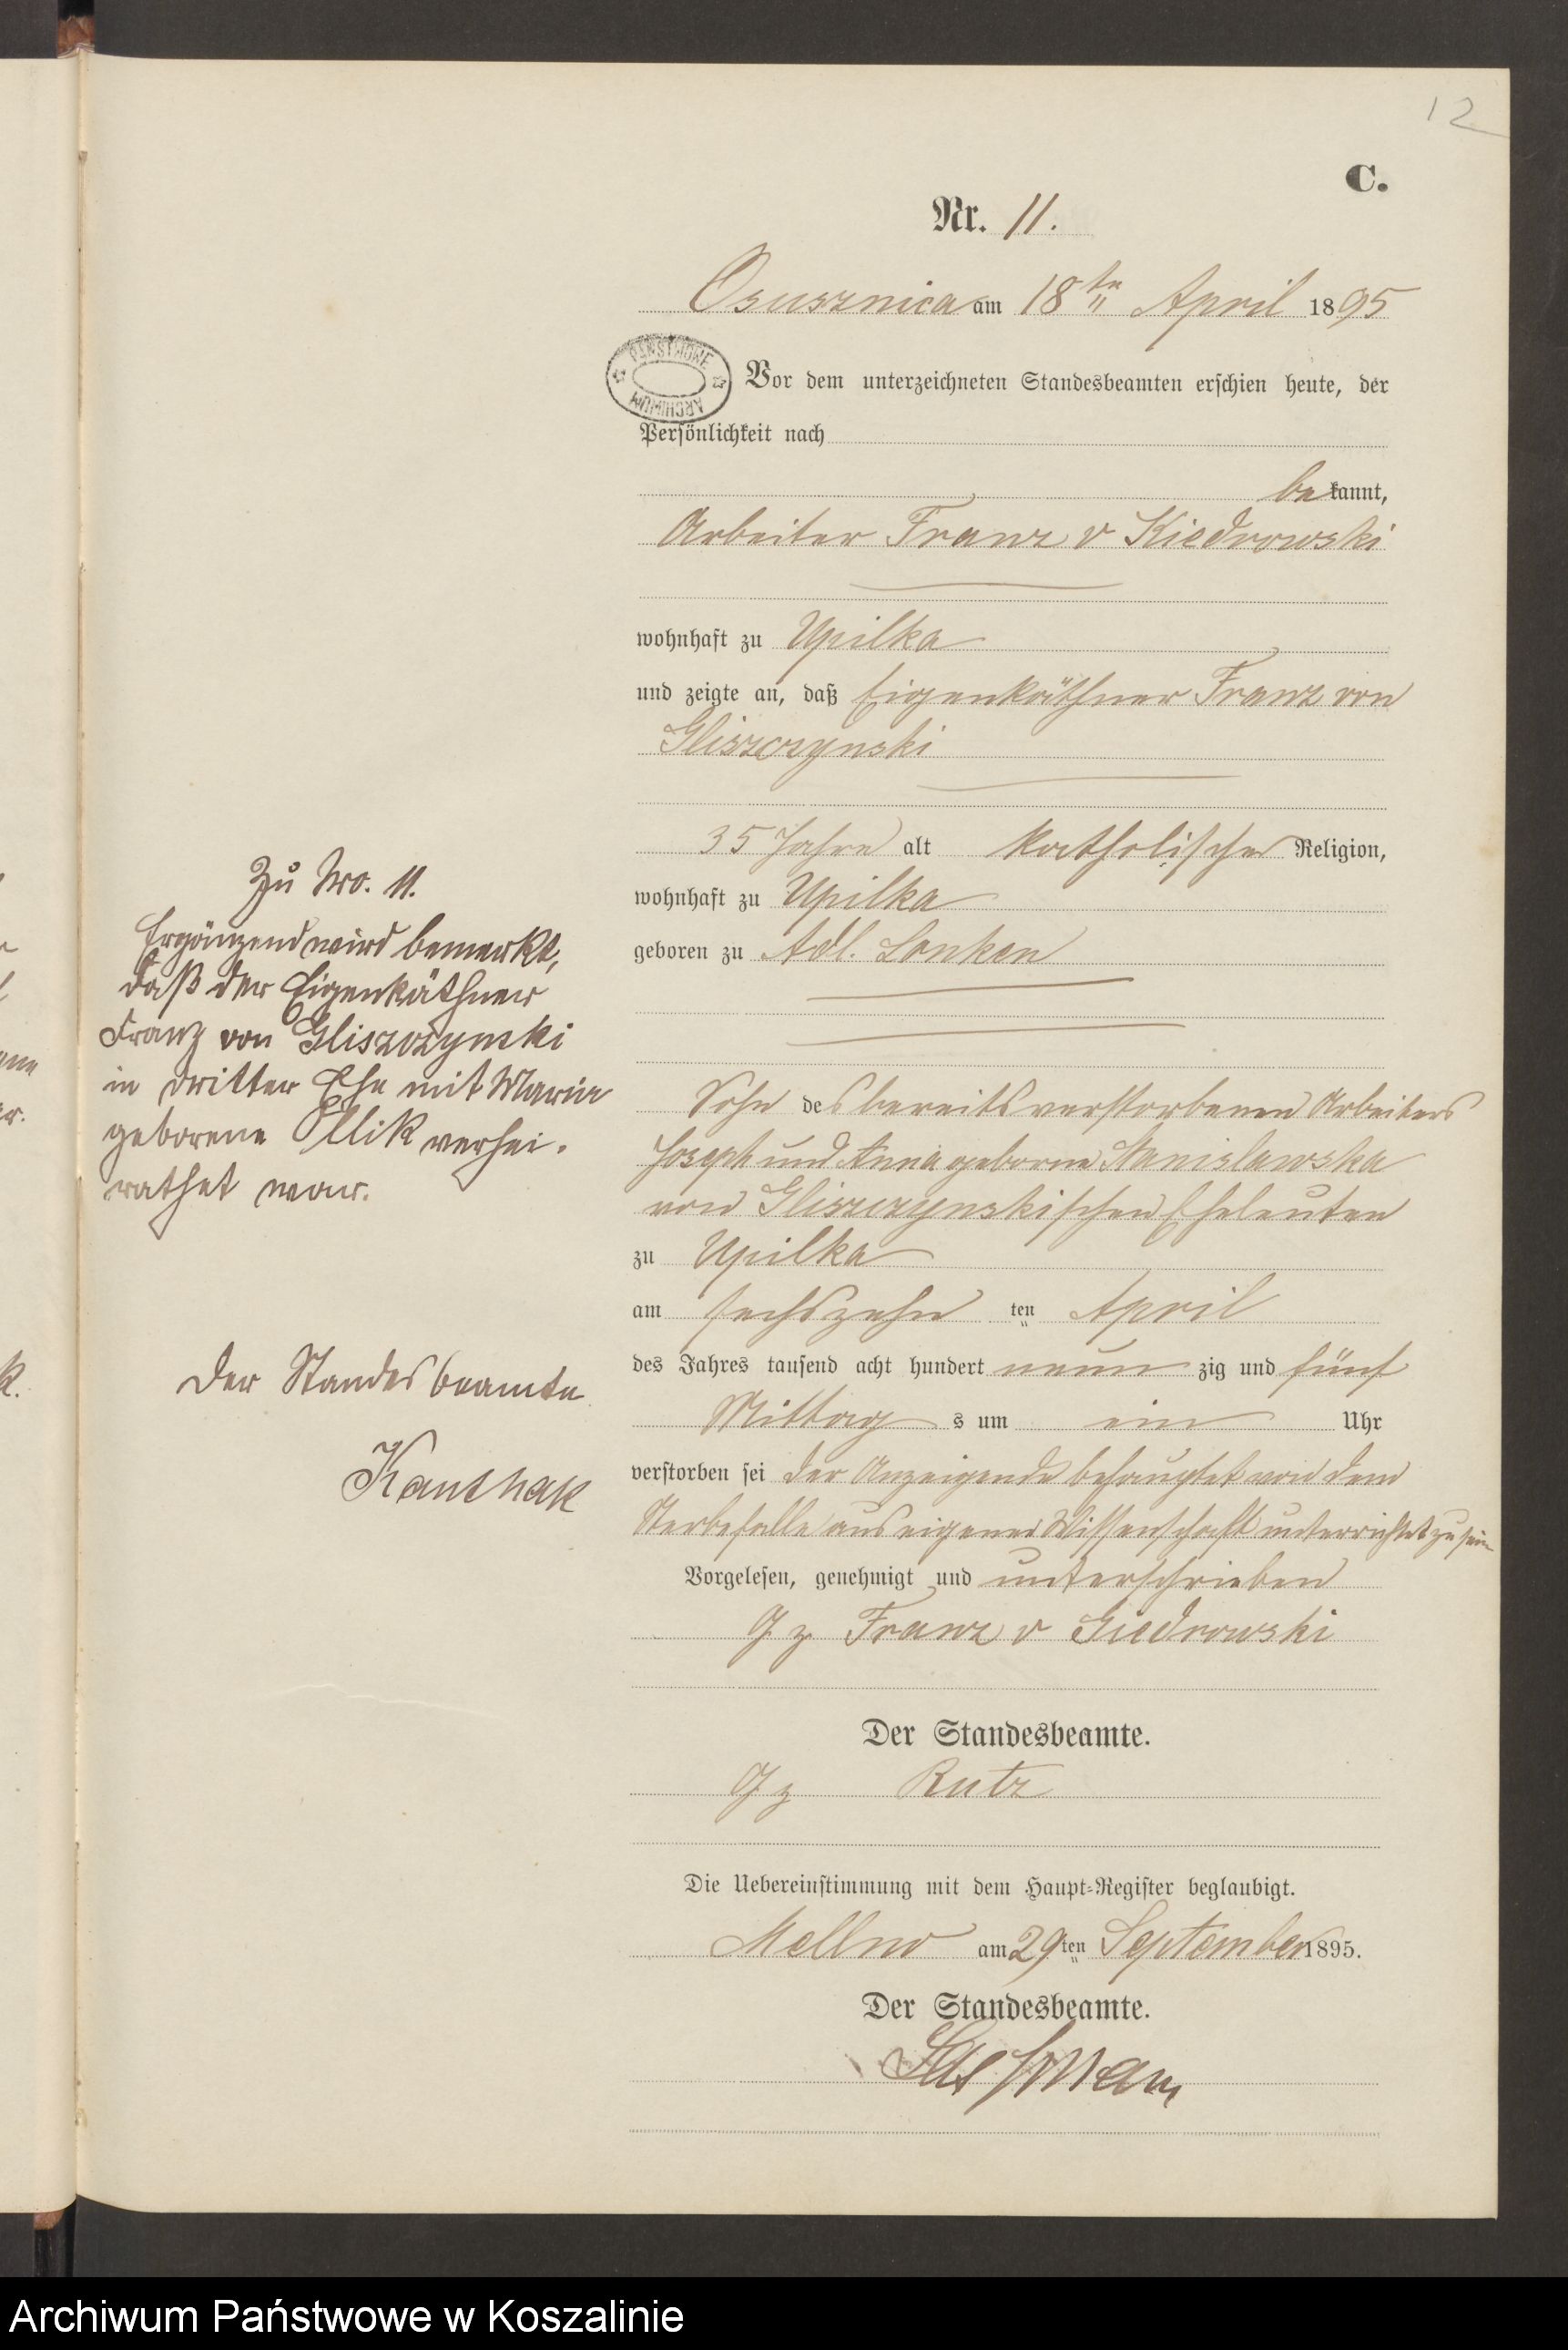 12
C.
Nr. 11.
Osusznica am 18ten April 1895
PAŃSTWOWE ARCHIWUM
Vor dem unterzeichneten Standesbeamten erschien heute, der
Persönlichkeit nach
bekannt,
Arbeiter Franz v Kiedrowski
wohnhaft zu Upilka
und zeigte an, daß Eigenkäthner Franz von
Gliszczynski
35 Jahre alt katholischer Religion,
wohnhaft zu Upilka
geboren zu Adl. Lonken
Sohn des bereits verstorbenen Arbeiters
Joseph und Anna geborne Stanislawska
von Gliszczynskischen Eheleuten
zu Upilka
am sechszehn ten April
des Jahres tausend acht hundert neun zig und fünf
Mittag s um ein Uhr
verstorben sei der Anzeigende behauptet von dem
Sterbefalle aus eigener Wissenschaft unterrichtet zu sein
Vorgelesen, genehmigt und unterschrieben
Gz Franz v Giedrowski
Der Standesbeamte.
Gz Rutz
Die Uebereinstimmung mit dem Haupt-Register beglaubigt.
Mellno am 29ten September 1895.
Der Standesbeamte.
Zu Nro. 11.
Ergänzend wird bemerkt,
daß der Eigenkäthner
Franz von Gliszczynski
in dritter Ehe mit Maria
geborene Ollik verhei-
rathet war.
Der Standesbeamte
Kanthak
Archiwum Państwowe w Koszalinie